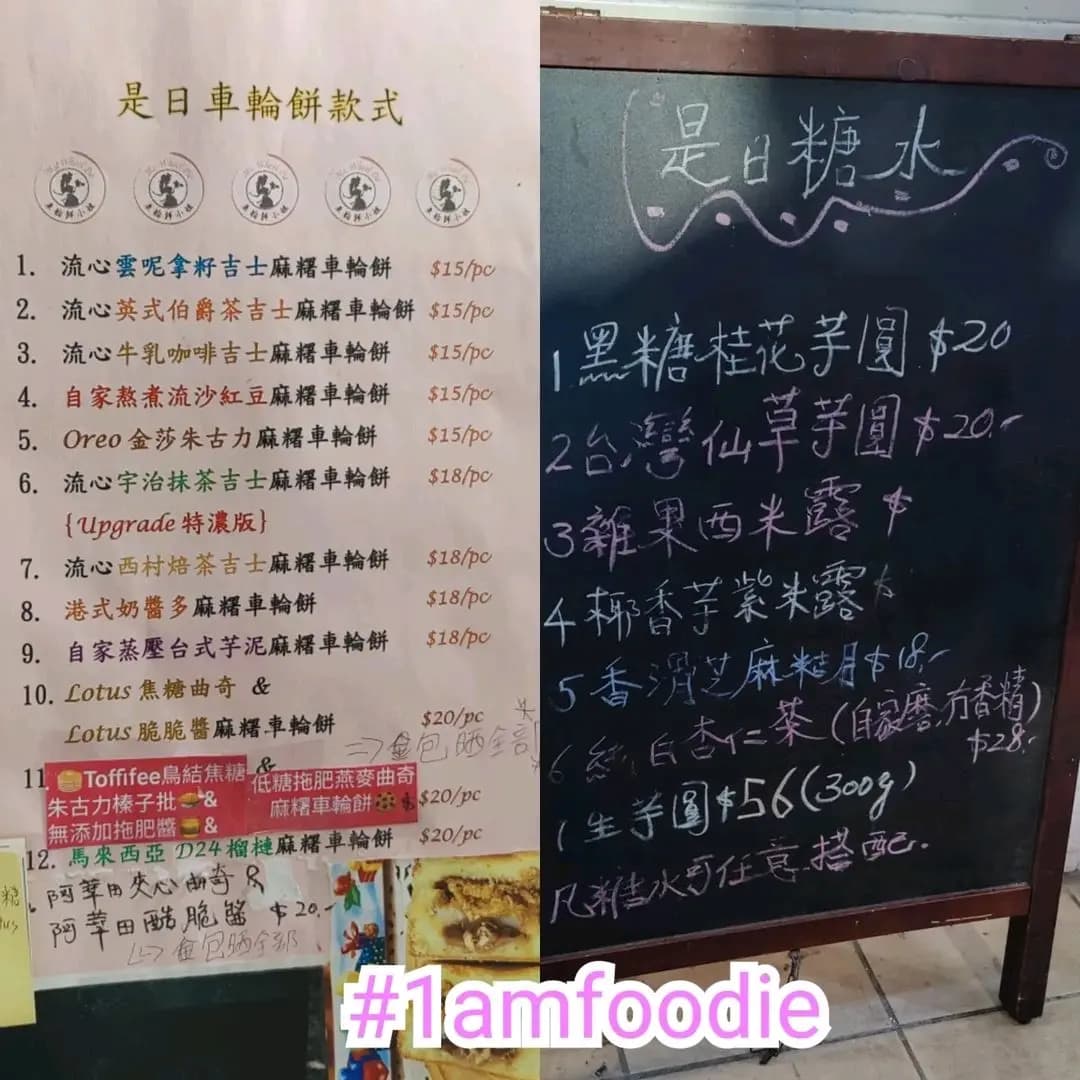 是日車輪餅款式
車輪餅小姐
車輪餅小姐
車輪餅小姐
車輪餅小姐
車輪餅小姐
1. 流心雲呢拿籽吉士麻糬車輪餅 $15/pc
2. 流心英式伯爵茶吉士麻糬車輪餅 $15/pc
3. 流心牛乳咖啡吉士麻糬車輪餅 $15/pc
4. 自家熬煮流沙紅豆麻糬車輪餅 $15/pc
5. Oreo 金莎朱古力麻糬車輪餅 $15/pc
6. 流心宇治抹茶吉士麻糬車輪餅 $18/pc
{Upgrade 特濃版}
7. 流心西村焙茶吉士麻糬車輪餅 $18/pc
8. 港式奶醬多麻糬車輪餅 $18/pc
9. 自家蒸壓台式芋泥麻糬車輪餅 $18/pc
10. Lotus 焦糖曲奇 &
Lotus 脆脆醬麻糬車輪餅 $20/pc
11 &
Toffifee鳥結焦糖
朱古力榛子批&
無添加拖肥醬&
低糖拖肥燕麥曲奇
麻糬車輪餅 $20/pc
12. 馬來西亞 D24 榴槤麻糬車輪餅 $20/pc
阿華田夾心曲奇 &
阿華田酷脆醬 $20.-
糖
tus
是日糖水
1 黑糖桂花芋圓 $20
2 台灣仙草芋圓 $20.-
3 雜果西米露 $
4 椰香芋紫米露
5 香滑芝麻糊 $18.-
6 純白杏仁茶 (自家磨,冇香精)
$28.
1 生芋圓 $56 (300g)
凡糖水可任意搭配.
#1amfoodie